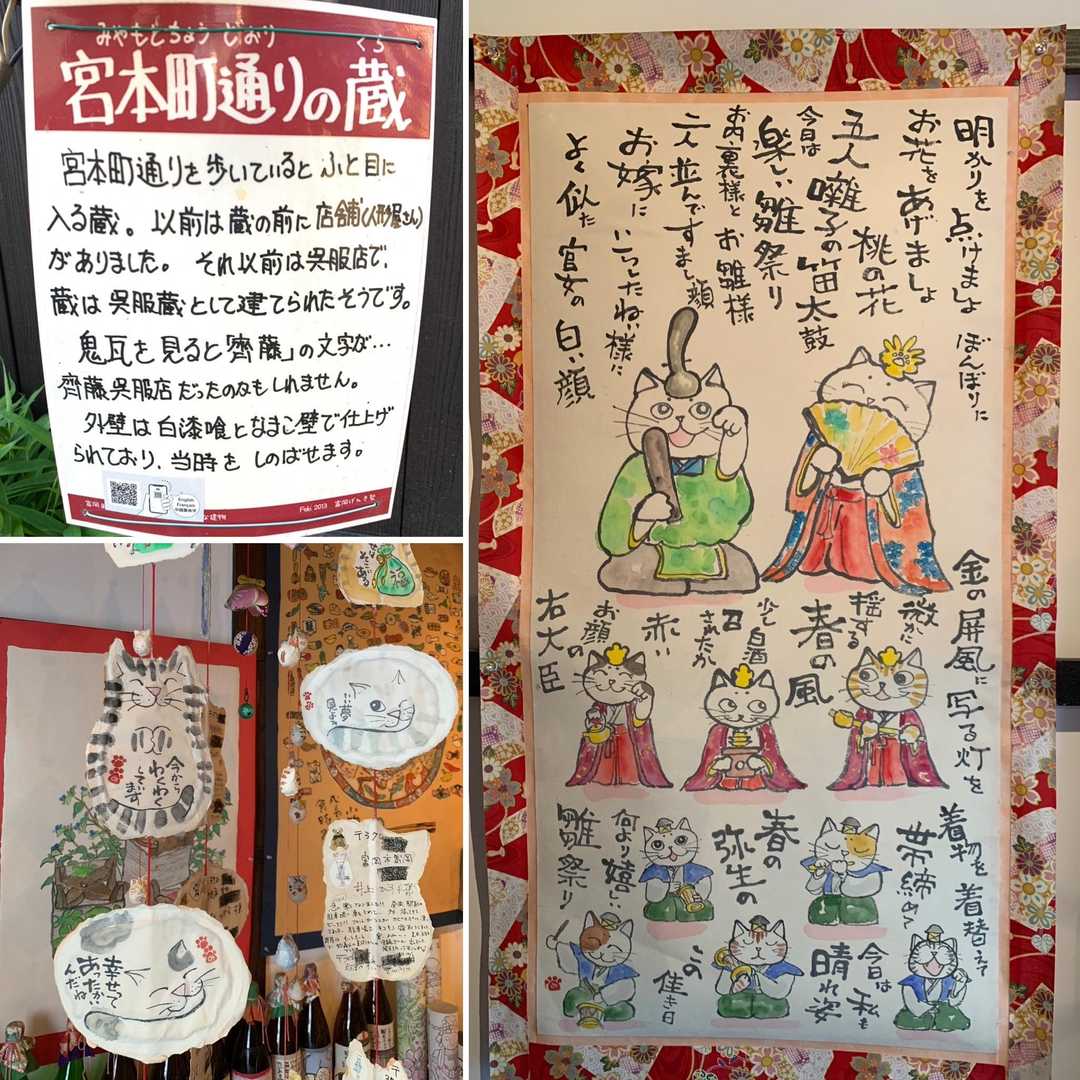 みやもとちょう どおり くら
宮本町通りの蔵
宮本町通りを歩いていると ふと目に
入る蔵。以前は蔵の前に店舗(人形屋さん)
がありました。それ以前は呉服店で、
蔵は呉服蔵として建てられたそうです。
鬼瓦を見ると「齊藤」の文字が…
齊藤呉服店だったのかもしれません。
外壁は白漆喰となまこ壁で仕上げ
られており、当時を しのばせます。
English
Français
Feb. 2013 富岡げんき塾
な建物
明かりを 点けましょ ぼんぼりに
お花をあげましょ 桃の花
五人囃子の笛太鼓
今日は
楽しい雛祭り
お内裏様と お雛様
二人並んですまし顔
お嫁に いらしたねい様に
よく似た 官女の 白い顔
金の屏風に 写る灯を
微かに
揺する
春の風
少し 白酒
召されたか
赤い
お顔の
右大臣
着物を 着替えて
帯締めて
今日は 私も
晴れ姿
春の
弥生の
この 佳き日
何より嬉しい
雛祭り
そこに
ある
福
今から
わくわく
しています
いい夢
見よう
幸せって
あたたかい
んだね